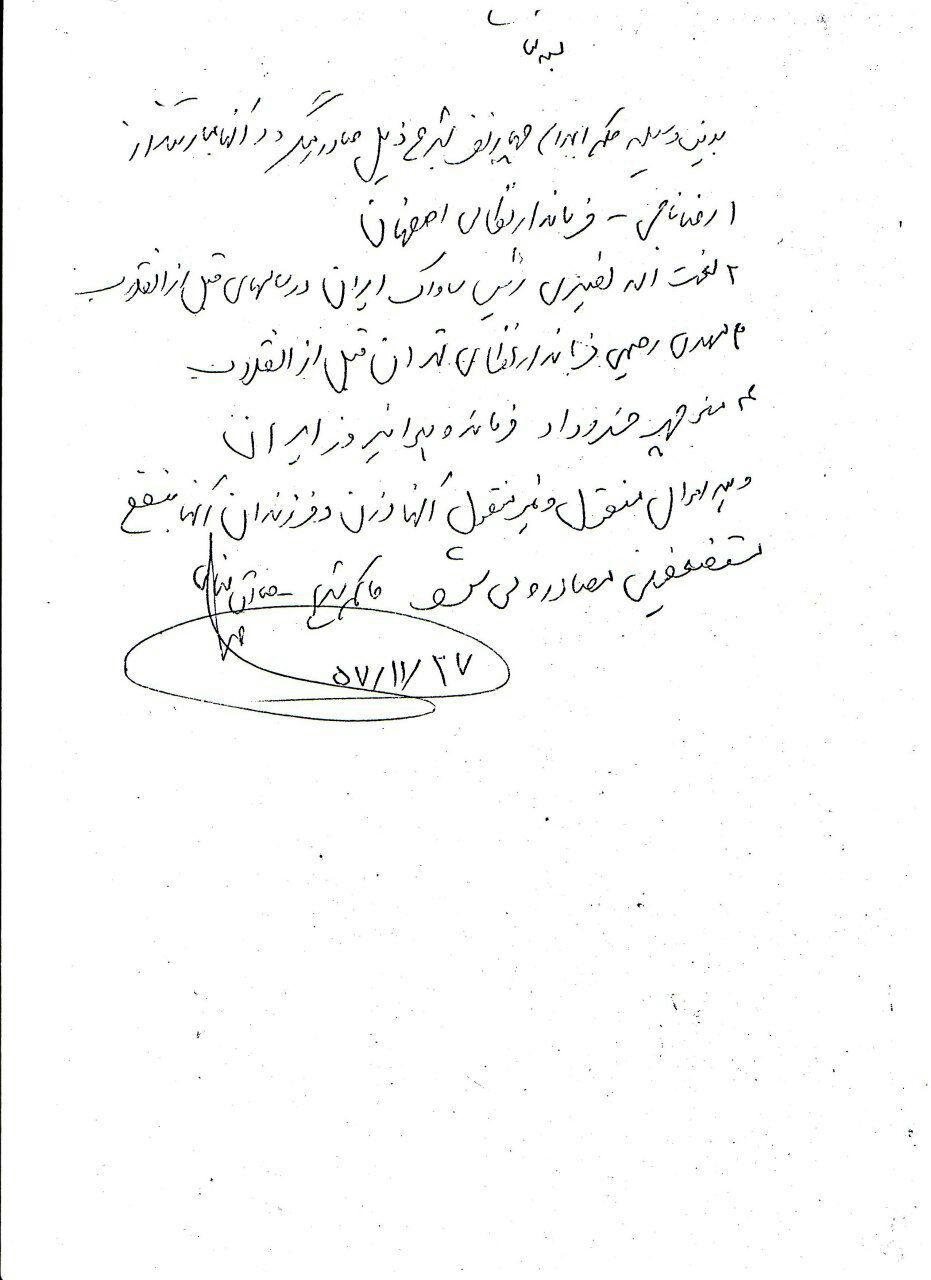 بسمه تعالی
بدین وسیله حکم اعدام چهار نفر بشرح ذیل صادر میگردد و آنها عبارتند از
۱ رضا ناجی - فرماندار نظامی اصفهان
۲ نعمت اله نصیری رئیس ساواک ایران در سالهای قبل از انقلاب
۳ مهدی رحیمی فرماندار نظامی تهران قبل از انقلاب
۴ منوچهر خسروداد فرمانده هوانیروز ایران
و همه اموال منقول و غیر منقول آنها و زن و فرزندان آنها بنفع
مستضعفین مصادره می شود حاکم شرع - صادق خلخالی
۵۷/۱۱/۲۷